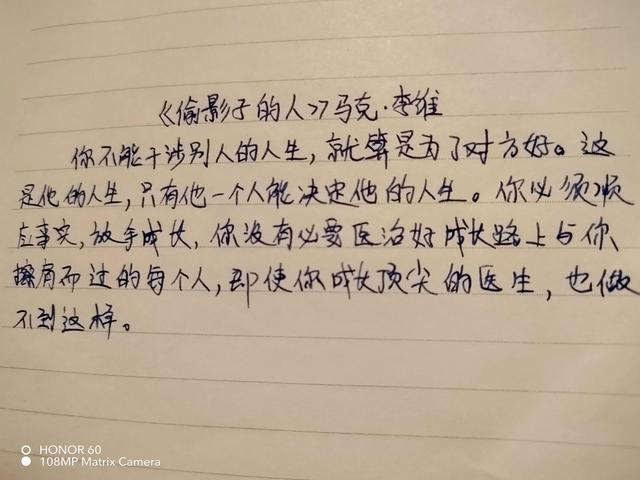 《偷影子的人》马克·李维
你不能干涉别人的人生，就算是为了对方好。这
是他的人生，只有他一个人能决定他的人生。你必须顺
应事实，放手成长，你没有必要医治好成长路上与你
擦肩而过的每个人，即使你成为顶尖的医生，也做
不到这样。
HONOR 60
108MP Matrix Camera